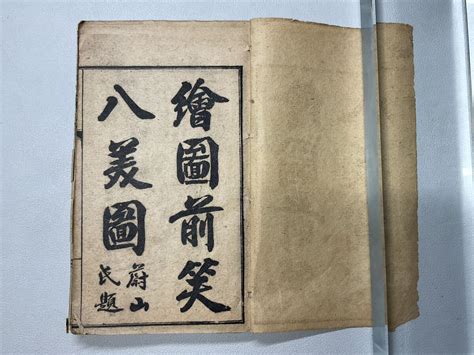 繪圖前笑
八美圖
蔚山
民題